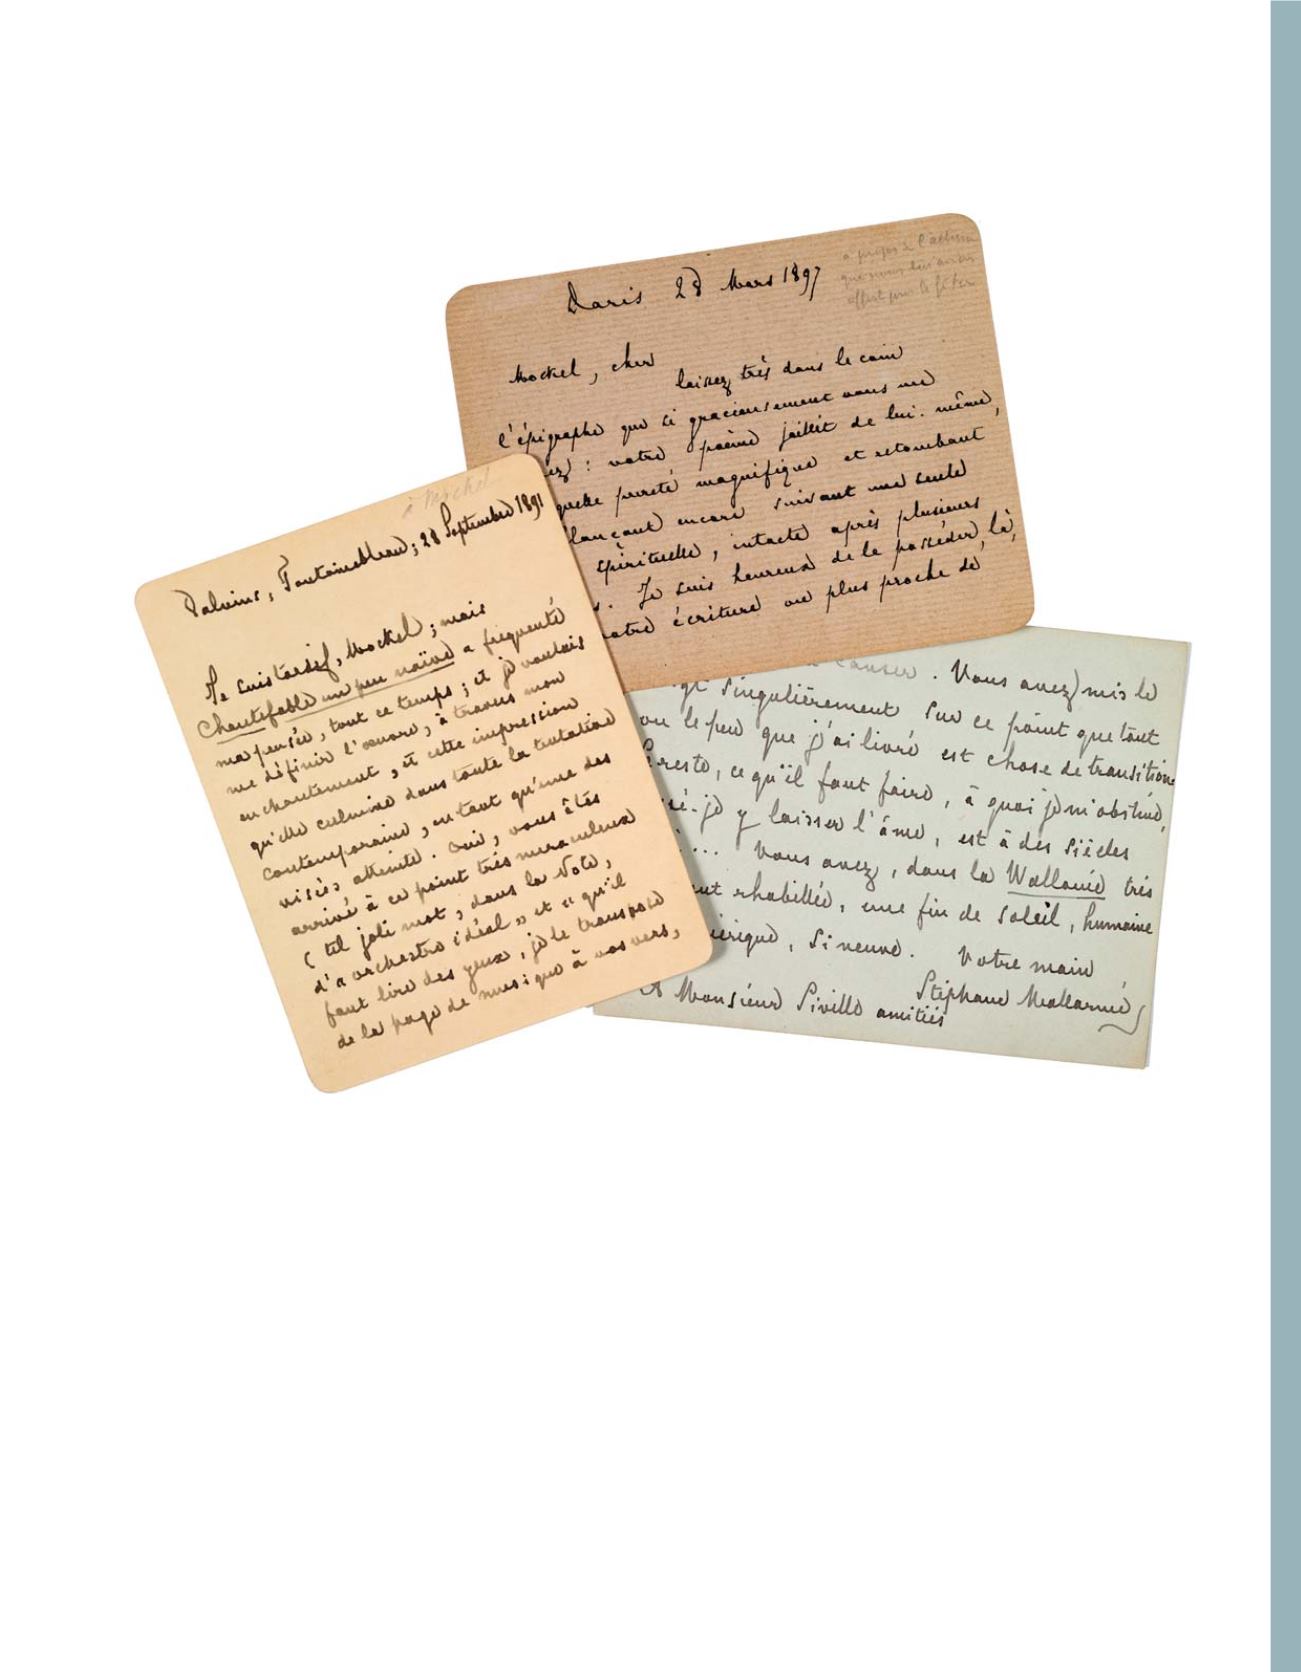 à propos de l'album
que nous lui avons
offert pour le fêter
Paris 28 Mars 1897
Mockel, cher
laissez très dans le coin
l'épigraphe que si gracieusement vous me
ez : votre poème jaillit de lui-même,
quelle pureté magnifique et retombant
lançant encore suivant une seule
spirituelle, intacte après plusieurs
s. Je suis heureux de le posséder, là,
votre écriture ou plus proche de
à Mockel
Valvins, Fontainebleau ; 28 Septembre 1891
Je suis tardif, Mockel ; mais
Chantefable un peu naïve a fréquenté
ma pensée, tout ce temps ; et je voulais
me définir l'œuvre, à travers mon
enchantement, et cette impression
qu'elle culmine dans toute la tentation
contemporaine, en tant qu'une des
visées atteinte. Oui, vous êtes
arrivé à ce point très miraculeux
( tel joli mot, dans la Note,
d'« orchestre idéal » et « qu'il
faut lire des yeux, je le transpose
de la page de musique à vos vers,
causer. Vous avez mis le
gt singulièrement sur ce point que tout
ou le peu que j'ai livré est chose de transition
reste, ce qu'il faut faire, à quoi je m'obstine,
sé-je y laisser l'âme, est à des siècles
... Vous avez, dans la Wallonie très
ut rhabillée, une fin de soleil, humaine
érique, si neuve. Votre main
Stéphane Mallarmé
A Monsieur Siville amitiés